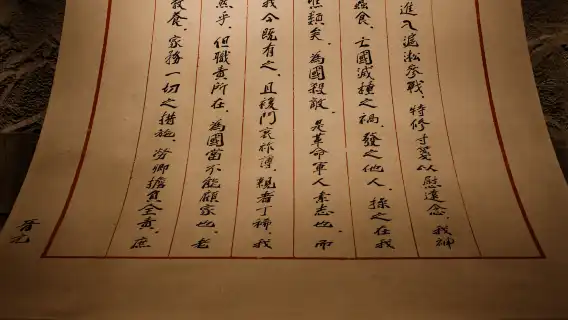 進入滬淞參戰，特修寸箋以慰遠念。我神
蚕食，亡國滅種之禍，發之他人，操之在我
噍類矣。為國殺敵，是革命軍人素志也，而
我今既有之，且複門衰祚薄，親者丁稀，我
然乎，但職責所在，為國當不能顧家也。老
教養，家務一切之措施，勞卿擔負全責，庶
晉元